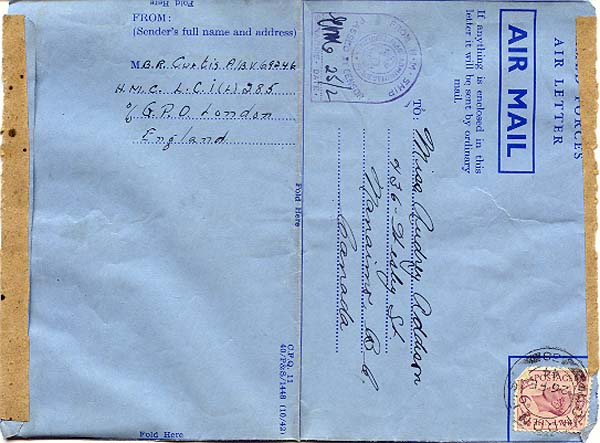 Fold Here
FROM:
(Sender's full name and address)
M.B.R. Curtis A/B.V.69246
H.M.C. L.C.I(L) 285
c/o G.P.O London
England
Fold Here
C.P.Q. 11
40/P&S/1448 (10/42)
Fold Here
FORCES
AIR LETTER
AIR MAIL
If anything is enclosed in this
letter it will be sent by ordinary
mail.
FROM H.M. SHIP
PASSED
DATE
25/2
TO:
Miss Audrey
St.
Nanaimo B.C.
Canada
POSTAGE